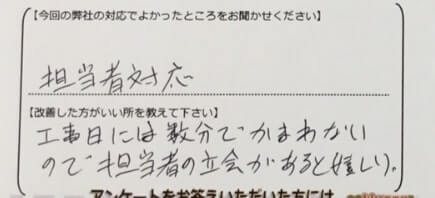 【今回の弊社の対応でよかったところをお聞かせください】
担当者対応
【改善した方がいい所を教えて下さい】
工事日には数分でかまわない
ので担当者の立会があると嬉しい。
アンケートをお答えいただいた方には